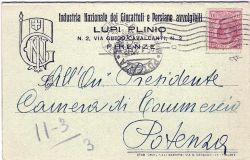 Industria Nazionale dei Giocattoli e Persiane avvolgibili
LUPI PLINIO
N. 2, VIA GUIDO CAVALCANTI, N. 2
FIRENZE
All'On. Presidente
Camera di Commercio
Potenza
11-3
3